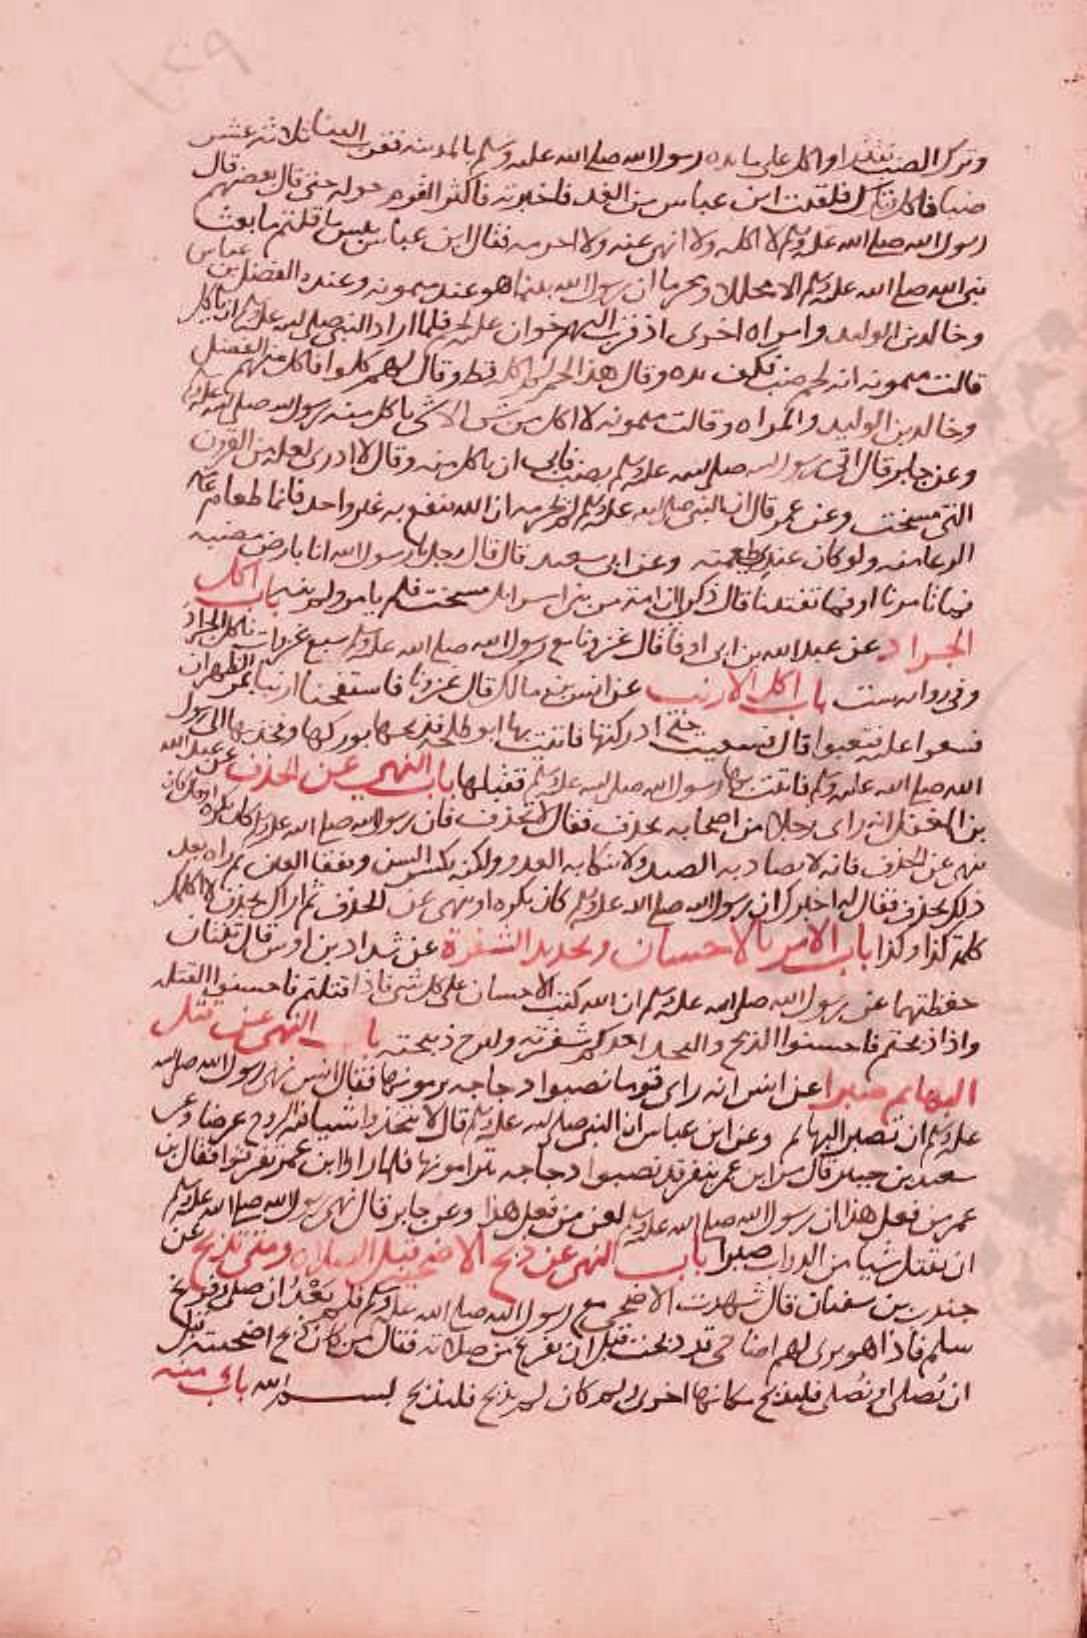 وترك الضب تقذرا واكل على مايده رسول الله صلى الله عليه وسلم بالمدينه فقرب الينا ثلاثة عشر
ضبا فاكل وتارك فلقيت ابن عباس من الغد فاخبرته فاكثر القوم حوله حتى قال بعضهم قال
رسول الله صلى الله عليه وسلم لا اكله ولا انهى عنه ولا احرمه فقال ابن عباس بيس ما قلتم ما بعث
نبى الله صلى الله عليه وسلم الا محللا ومحرما ان رسول الله بينما هو عند ميمونه وعنده الفضل بن عباس
وخالد بن الوليد وامراه اخرى اذ قرب اليهم خوان عليه لحم فلما اراد النبي صلى الله عليه وسلم ان ياكل
قالت ميمونه انه لحم ضب فكف يده وقال هذا لحم لم اكله قط وقال لهم كلوا فاكل منهم الفضل
وخالد بن الوليد والمراه وقالت ميمونه لا اكل من شى الا شى ياكل منه رسول الله صلى الله عليه وسلم
وعن جابر قال اتى رسول الله صلى الله عليه وسلم بضب فابى ان ياكل منه وقال لا ادرى لعله من القرون
التى مسخت وعن عمر قال ان النبي صلى الله عليه وسلم لم يحرمه ان الله ينفع به غير واحد فانما طعام عامه
الرعا منه ولو كان عندى طعمته وعن ابى سعيد قال قال رجل يا رسول الله انا بارض مضبه
فما تامرنا او فما تفتينا قال ذكر لى ان امة من بنى اسرايل مسخت فلم يامر ولم ينه باب اكل
الجراد عن عبد الله بن ابى اوفا قال غزونا مع رسول الله صلى الله عليه وسلم سبع غزوات ناكل الجراد
وفى روايه ست باب اكل الارنب عن انس بن مالك قال غزونا فاستنفجنا ارنبا بمر الظهران
فسعوا عليه فتعبوا قال فسعيت حتى ادركتها فاتيت بها ابو طلحه فذبحها بوركها وفخذيها الى رسول
الله صلى الله عليه وسلم فاتيت بها رسول الله صلى الله عليه وسلم فقبلها باب النهى عن الخذف عن عبد الله
بن المغفل انه راى رجلا من اصحابه يخذف فقال لا تخذف فان رسول الله صلى الله عليه وسلم كان يكره او قال كان
ينهى عن الخذف فانه لا يصاد به الصيد ولا ينكا به العدو ولكنه يكسر السن ويفقا العين ثم راه بعد
ذلك يخذف فقال له اخبرك ان رسول الله صلى الله عليه وسلم كان يكره او ينهى عن الخذف ثم اراك تخذف لا اكلمك
كلمة كذا وكذا باب الامر بالاحسان وتحديد الشفرة عن شداد بن اوس قال ثنتان
حفظتهما عن رسول الله صلى الله عليه وسلم ان الله كتب الاحسان على كل شى فاذا قتلتم فاحسنوا القتله
واذا ذبحتم فاحسنوا الذبح واليحد احدكم شفرته وليرح ذبيحته باب النهى عن قتل
البهايم صبرا عن انس انه راى قوما نصبوا دجاجه يرمونها فقال انس نهى رسول الله صلى الله
عليه وسلم ان تصبر البهايم وعن ابن عباس ان النبي صلى الله عليه وسلم قال لا تتخذوا شيا فيه الروح عرضا وعن
سعيد بن جبير قال مر ابن عمر بنفر قد نصبوا دجاجه يترامونها فلما راوا ابن عمر تفرقوا فقال بن
عمر من فعل هذا ان رسول الله صلى الله عليه وسلم لعن من فعل هذا وعن جابر قال نهى رسول الله صلى الله عليه وسلم
ان نقتل شيا من الدواب صبرا باب النهى عن ذبح الاضحيه قبل الصلاه ومتى تذبح عن
جندب بن سفيان قال شهدت الاضحى مع رسول الله صلى الله عليه وسلم فلم يعد ان صلى وفرغ
سلم فاذا هو يرى لهم اضاحى قد ذبحت قبل ان يفرغ من صلاته فقال من كان ذبح اضحيته قبل
ان يصلى او نصلى فليذبح مكانها اخرى ومن كان لم يذبح فليذبح بسم الله باب منه